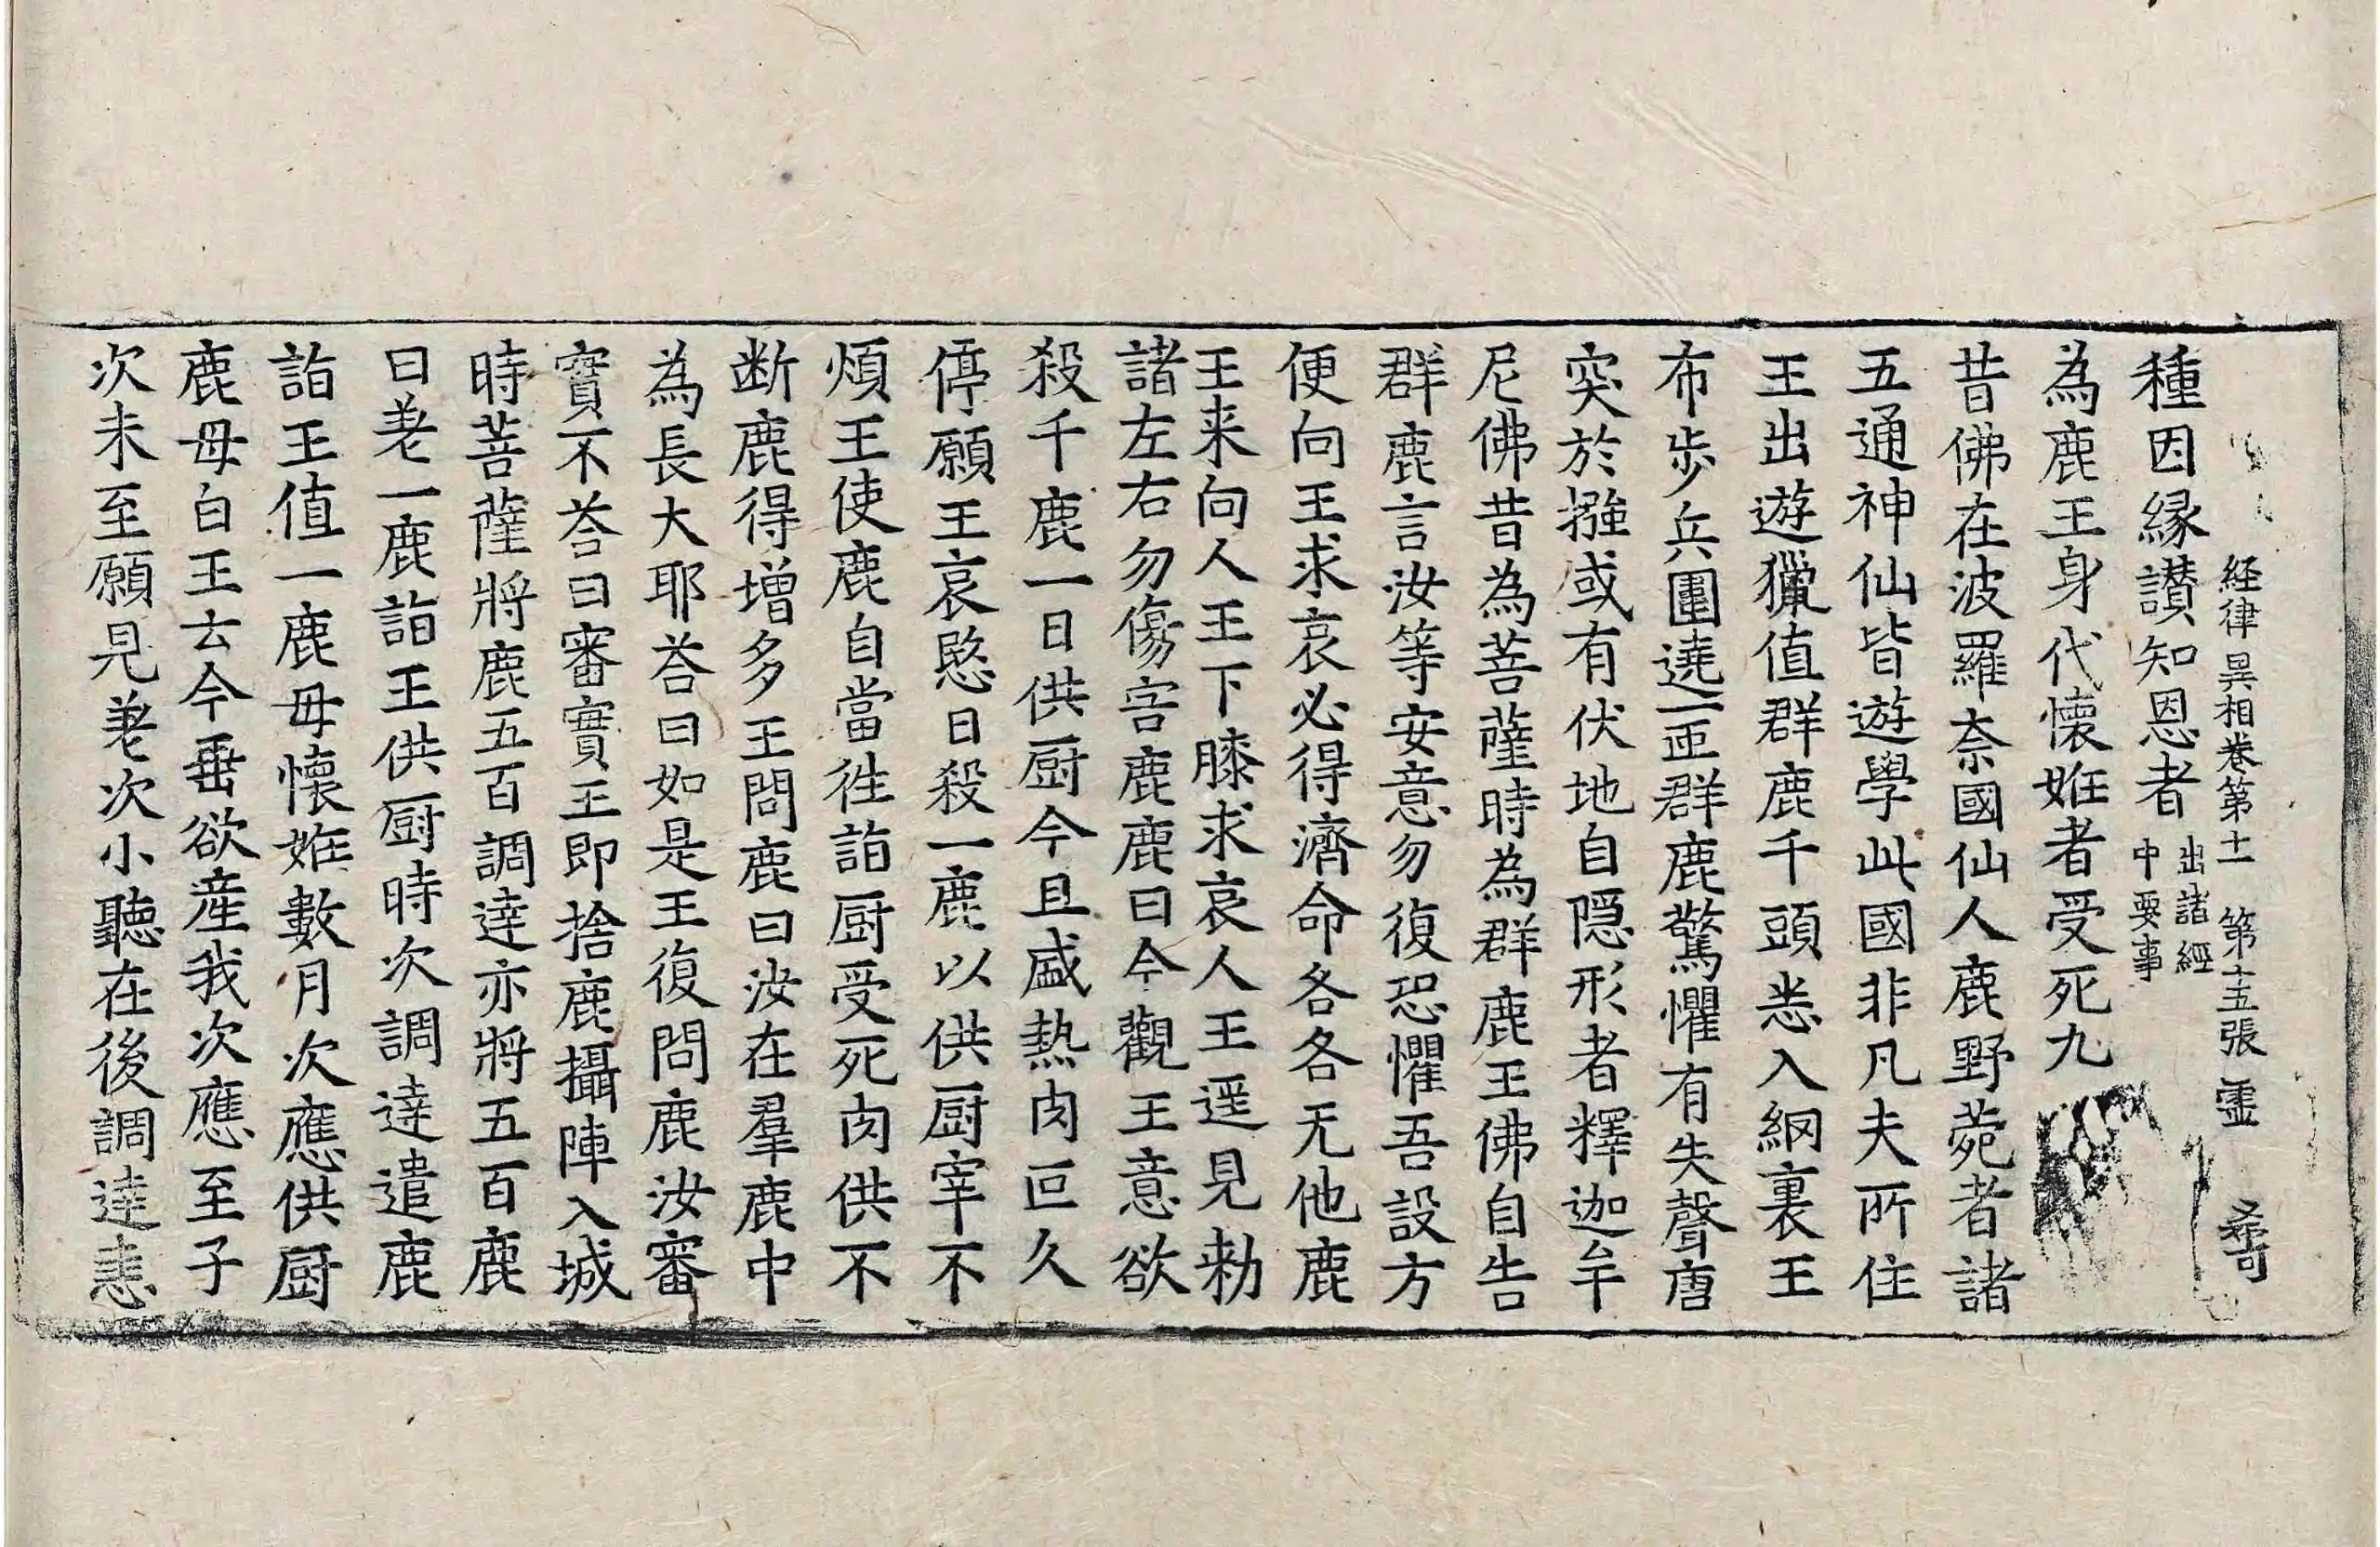 経律異相卷第十一 第十五張 霊
種因縁讃知恩者 出諸經中要事
為鹿王身代懐姙者受死九
昔佛在波羅奈國仙人鹿野菀者諸
五通神仙皆遊學此國非凡夫所住
王出遊獵值群鹿千頭悉入網裏王
布步兵圍遶一匝群鹿驚懼有失聲唐
突於㨘或有伏地自隠形者釋迦牟
尼佛昔為菩薩時為群鹿王佛自告
群鹿言汝等安意勿復恐懼吾設方
便向王求哀必得濟命各各无他鹿
王来向人王下膝求哀人王遥見勑
諸左右勿傷害鹿鹿曰今觀王意欲
殺千鹿一日供厨今且盛熱肉叵久
停願王哀愍日殺一鹿以供厨宰不
煩王使鹿自當往詣厨受死肉供不
断鹿得增多王問鹿曰汝在羣鹿中
為長大耶荅曰如是王復問鹿汝審
實不荅曰審實王即捨鹿攝陣入城
時菩薩將鹿五百調達亦將五百鹿
曰差一鹿詣王供厨時次調達遣鹿
詣王值一鹿母懐姙數月次應供厨
鹿母白王云今垂欲產我次應至子
次未至願見差次小聽在後調達恚